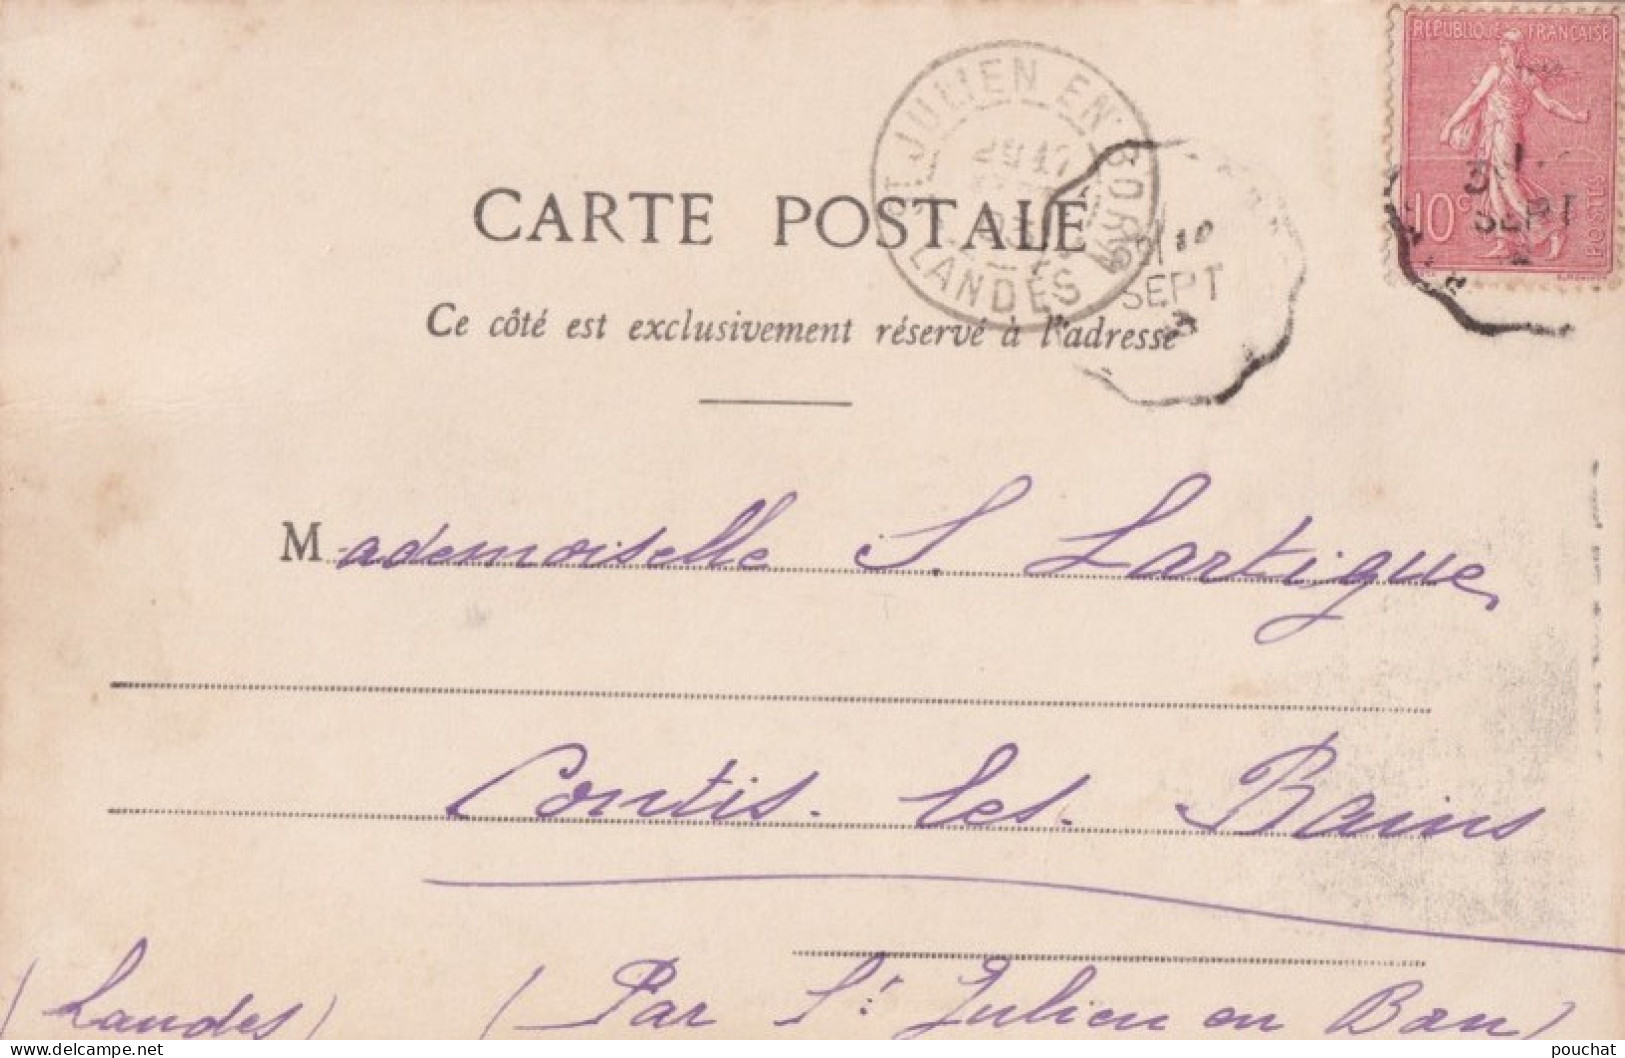 RÉPUBLIQUE FRANÇAISE
10c
POSTES
SEPT
ST JULIEN EN BORN
LANDES
SEPT
CARTE POSTALE
Ce côté est exclusivement réservé à l'adresse
Mademoiselle S. Lartigue,
Contis. les. Bains
(Landes) (Par St Julien en Born)
pouchat